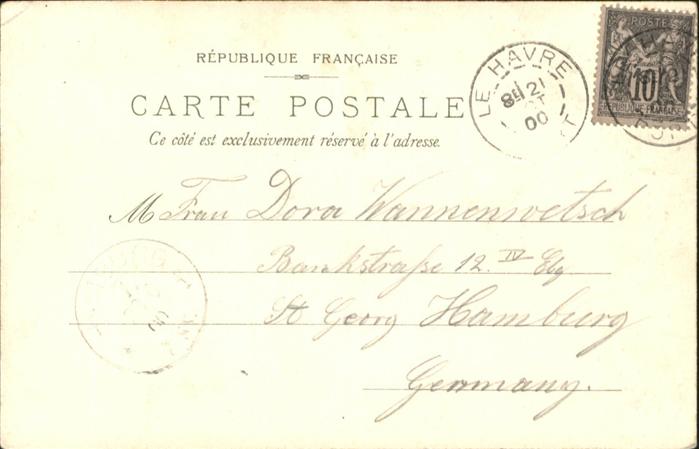 RÉPUBLIQUE FRANÇAISE
CARTE POSTALE
Ce côté est exclusivement réservé à l'adresse.
LE HAVRE
8E 21
00
POSTES
10
RÉPUBLIQUE FRANÇAISE
M Frau Dora Wannenwetsch
Bankstraße 12. IV Etg
St Georg Hamburg
Germany.